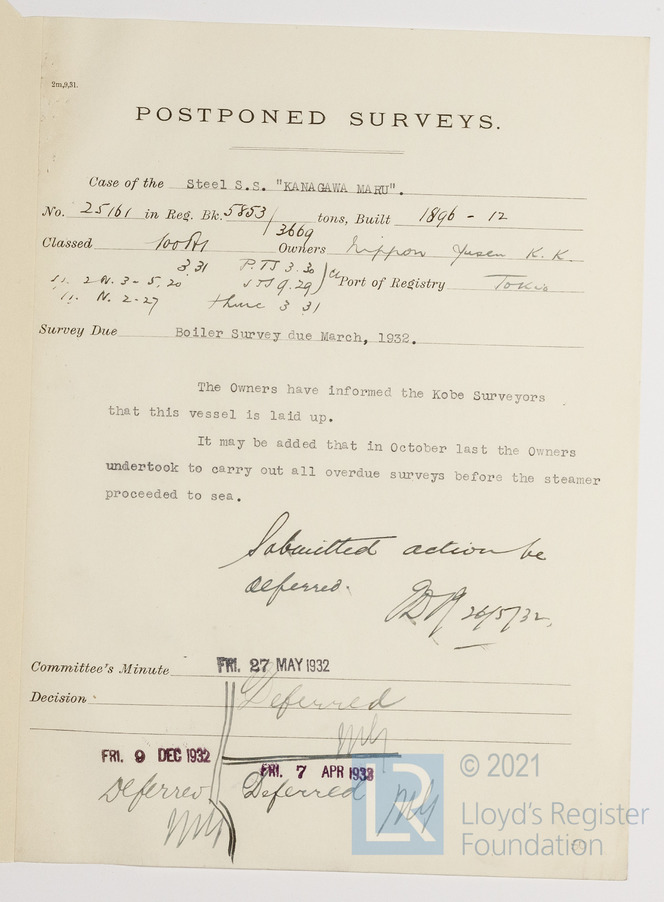 2m,9,31.
POSTPONED SURVEYS.
Case of the Steel S.S. "KANAGAWA MARU".
No. 25161 in Reg. Bk. 5853/3669 tons, Built 1896 - 12
Classed 100A1 Owners Nippon Yusen K. K.
3,31 P.TS 3.30
2 N. 3 - 5,20 STS 9.29 Port of Registry Tokio
N. 2-27 3 31
Survey Due Boiler Survey due March, 1932.
The Owners have informed the Kobe Surveyors
that this vessel is laid up.
It may be added that in October last the Owners
undertook to carry out all overdue surveys before the steamer
proceeded to sea.
Submitted action be
deferred.
26/5/32.
Committee's Minute FRI. 27 MAY 1932
Decision Deferred
FRI. 9 DEC 1932
Deferred
FRI. 7 APR 1933
Deferred
LR
© 2021
Lloyd's Register
Foundation